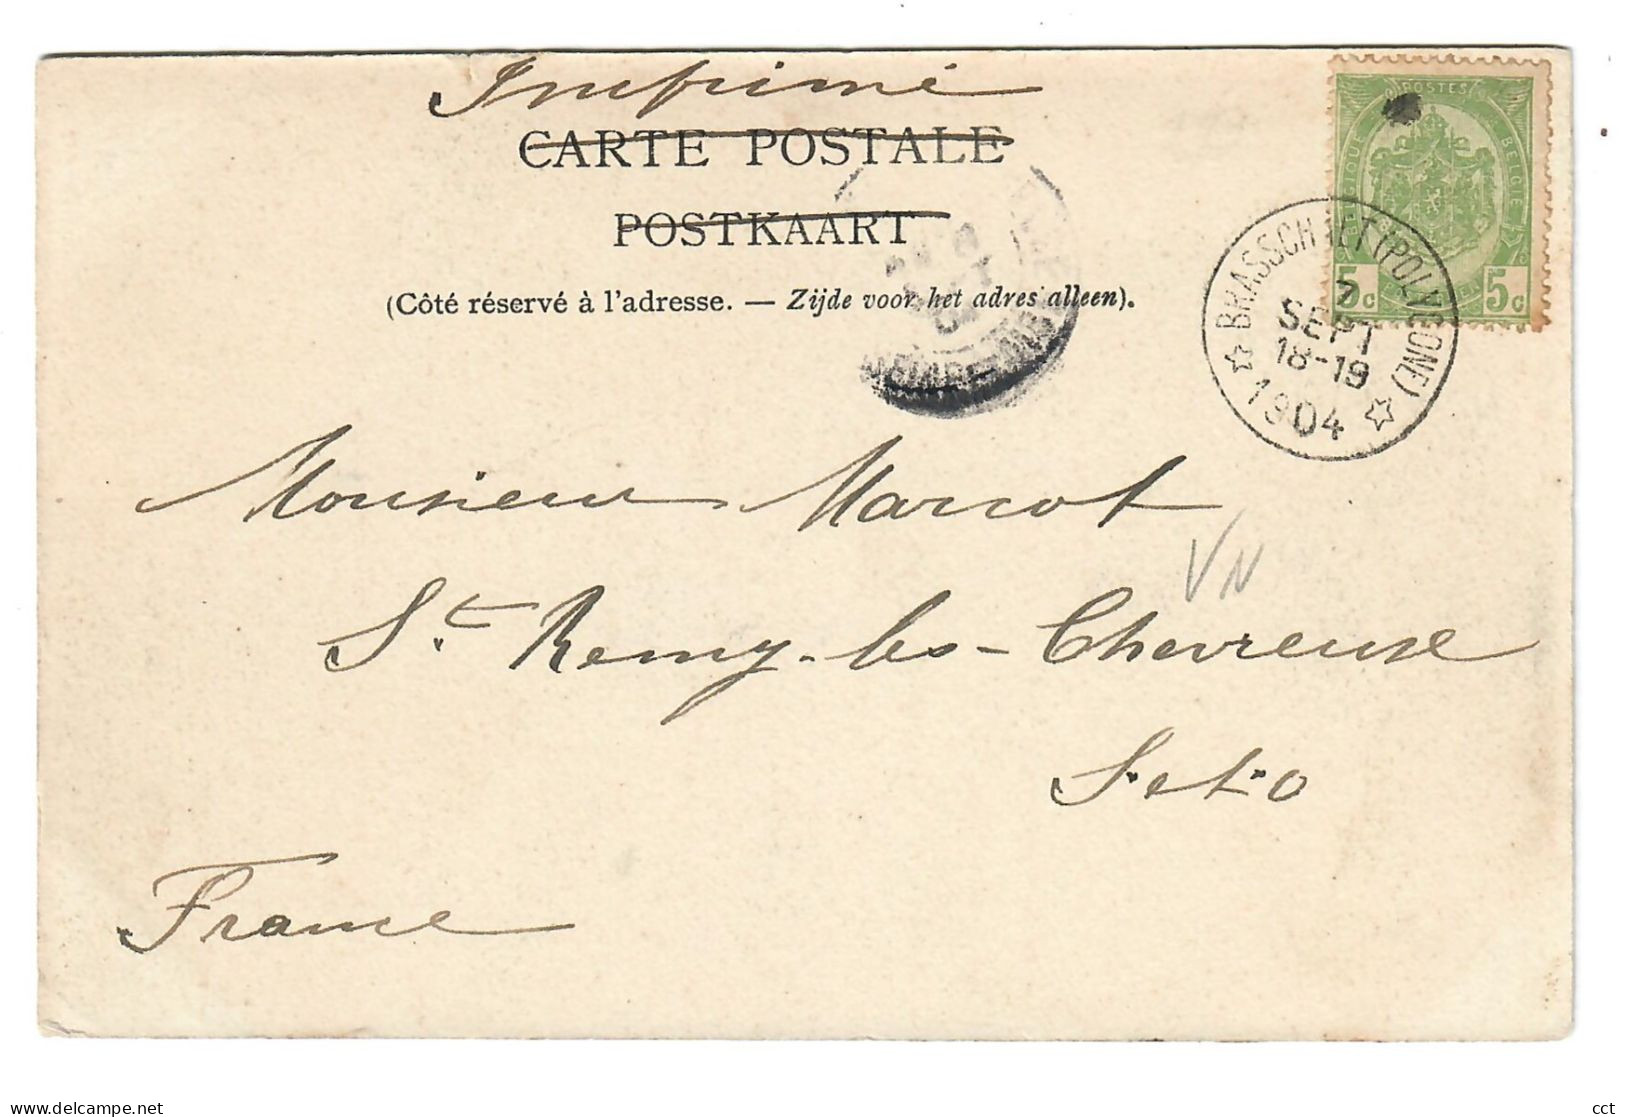 Imprimé
CARTE POSTALE
POSTKAART
(Côté réservé à l'adresse. — Zijde voor het adres alleen).
POSTES
BELGIQUE BELGIE
5c 5c
BRASSCHAET (POLYGONE)
7
SEPT
18-19
1904
Monsieur Marcot
VN
St. Remy-les-Chevreuse
S.et.O
France
delcampe.net
cct